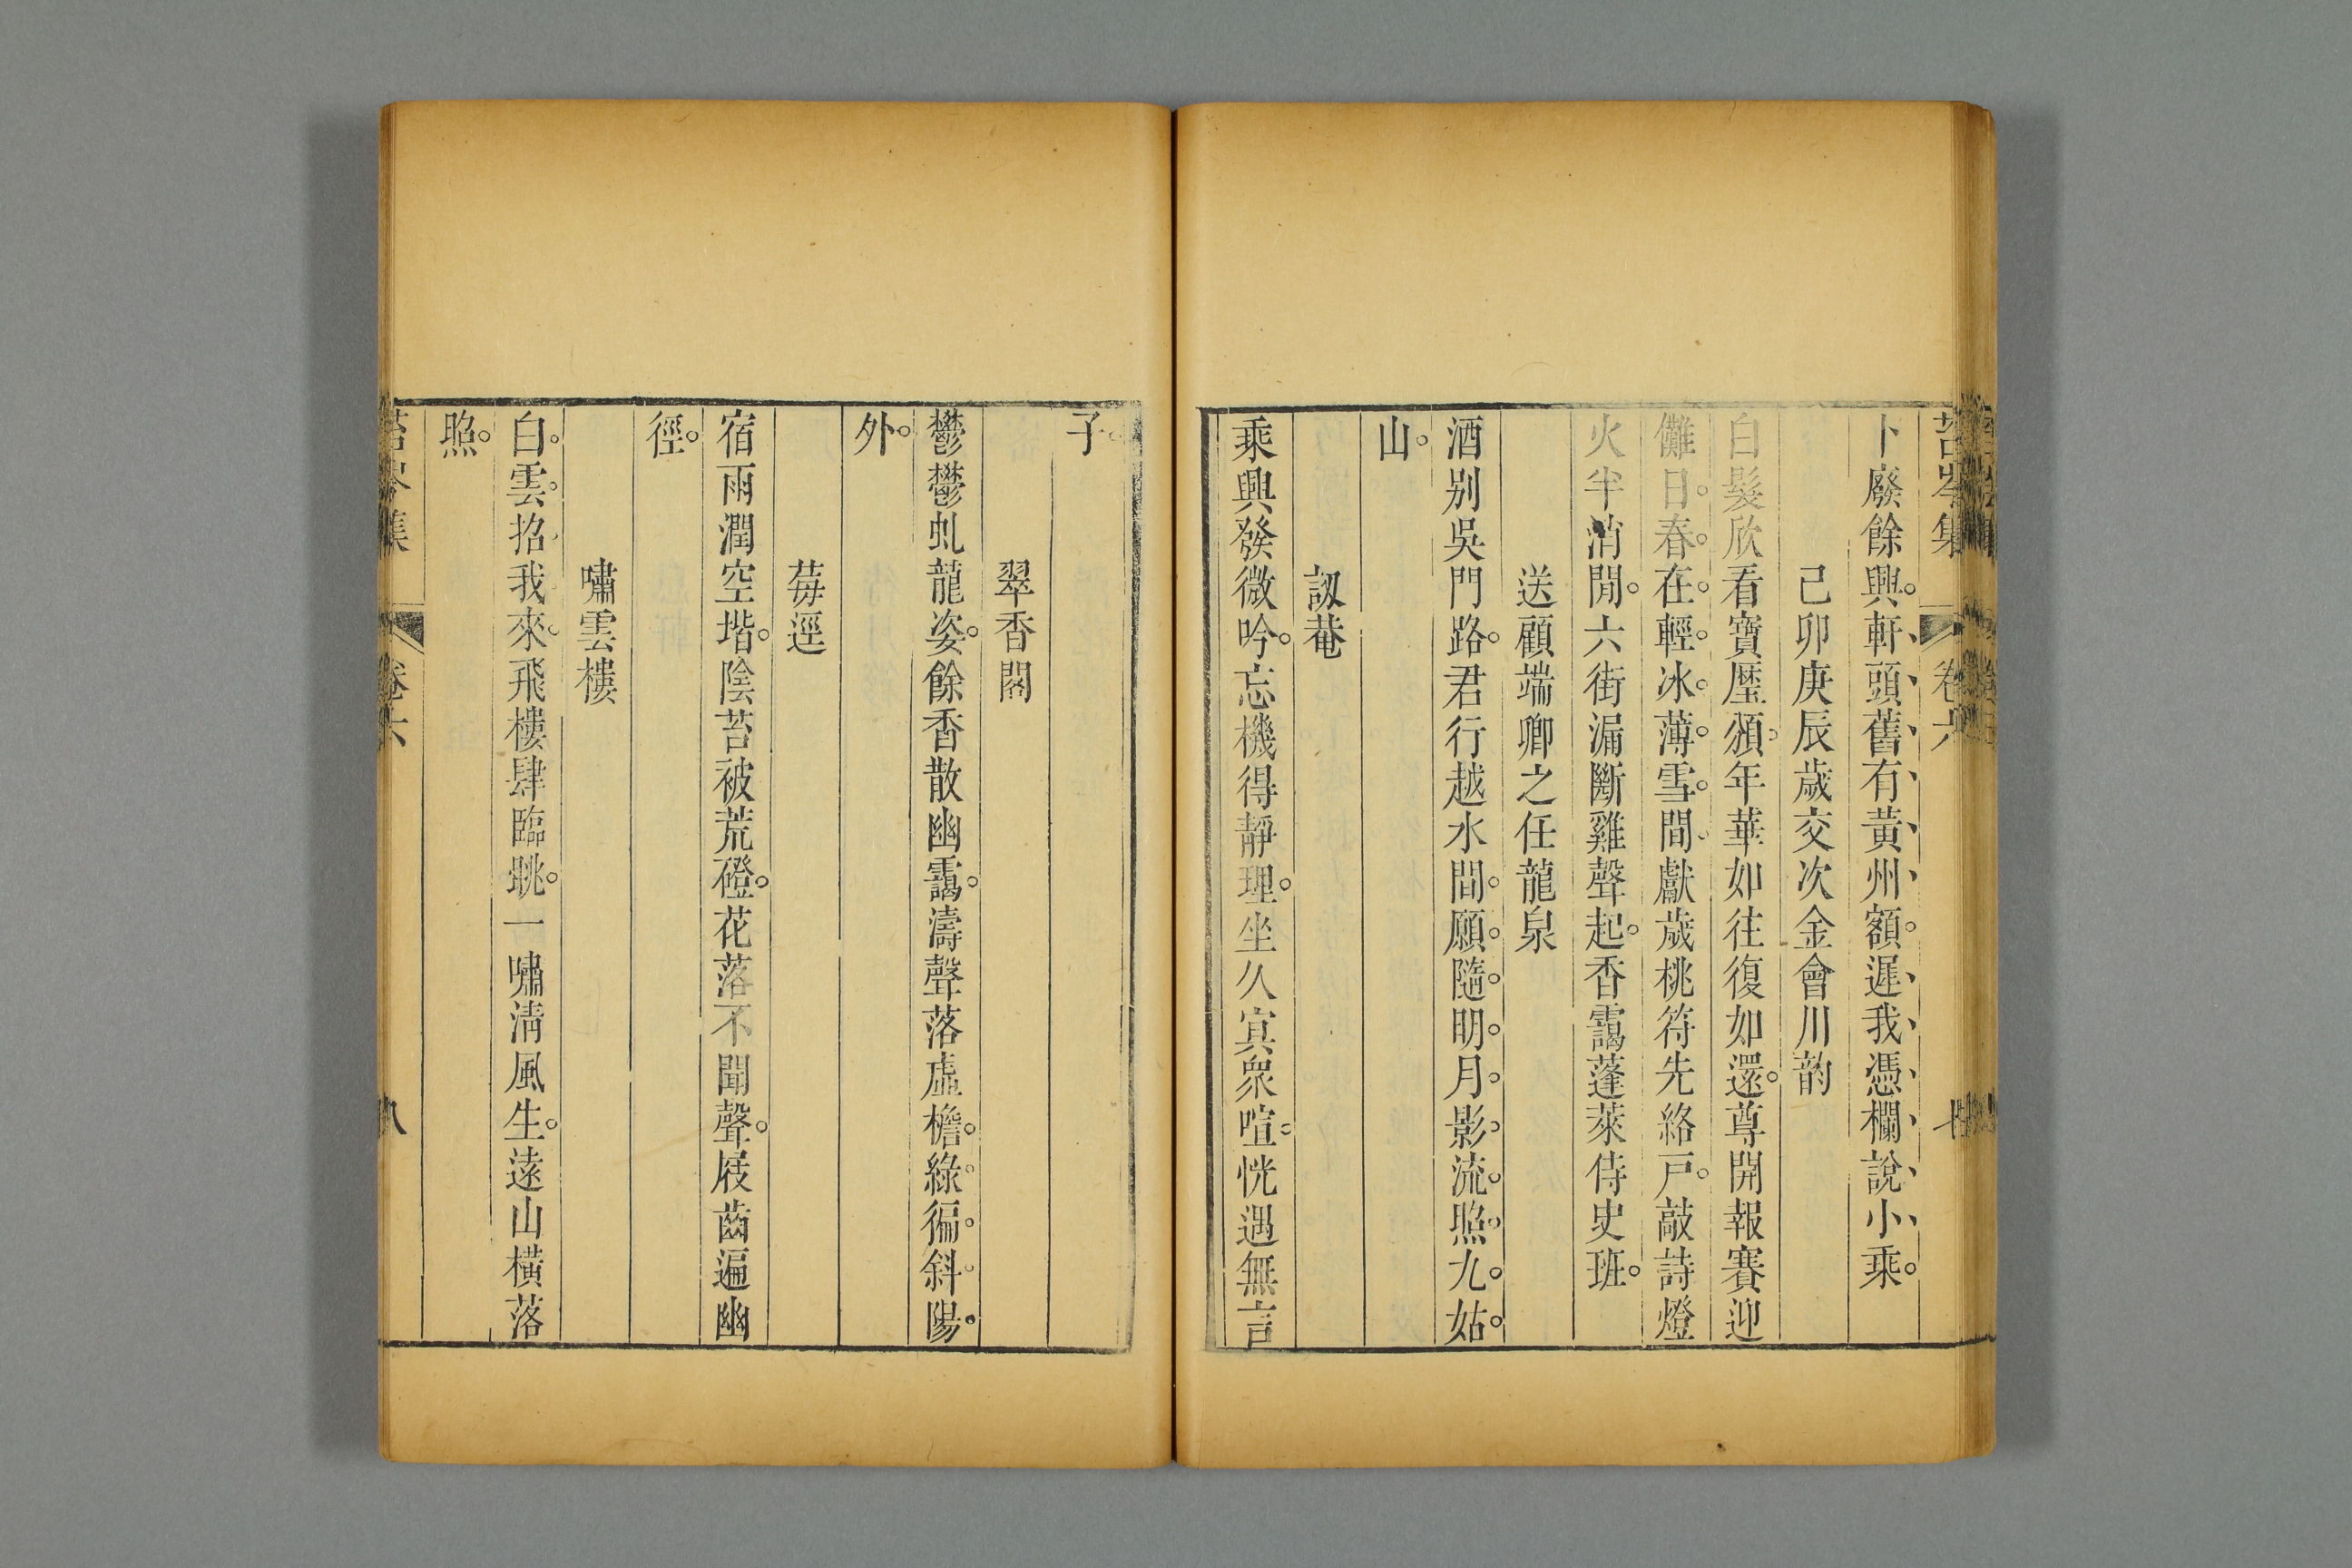 苔岑集 卷六
卜廢餘興。軒頭舊有黃州額。遲我憑欄說小乘。
己卯庚辰歲交次金會川韵
白髮欣看寶歷頒。年華如往復如還。尊開報賽迎
儺日。春在輕冰薄雪間。獻歲桃符先絡戶。敲詩燈
火半消閒。六街漏斷雞聲起。香靄蓬萊侍史班。
送顧端卿之任龍泉
酒別吳門路。君行越水間。願隨明月影。流照九姑
山。
訒菴
乘興發微吟。忘機得靜理。坐久寘衆喧。恍遇無言
子。
翠香閣
鬱鬱虬龍姿。餘香散幽靄。濤聲落虛檐。綠徧斜陽
外。
莓逕
宿雨潤空堦。陰苔被荒磴。花落不聞聲。屐齒遍幽
徑。
嘯雲樓
白雲招我來。飛樓肆臨眺。一嘯淸風生。遠山橫落
照。
苔岑集 卷六 八